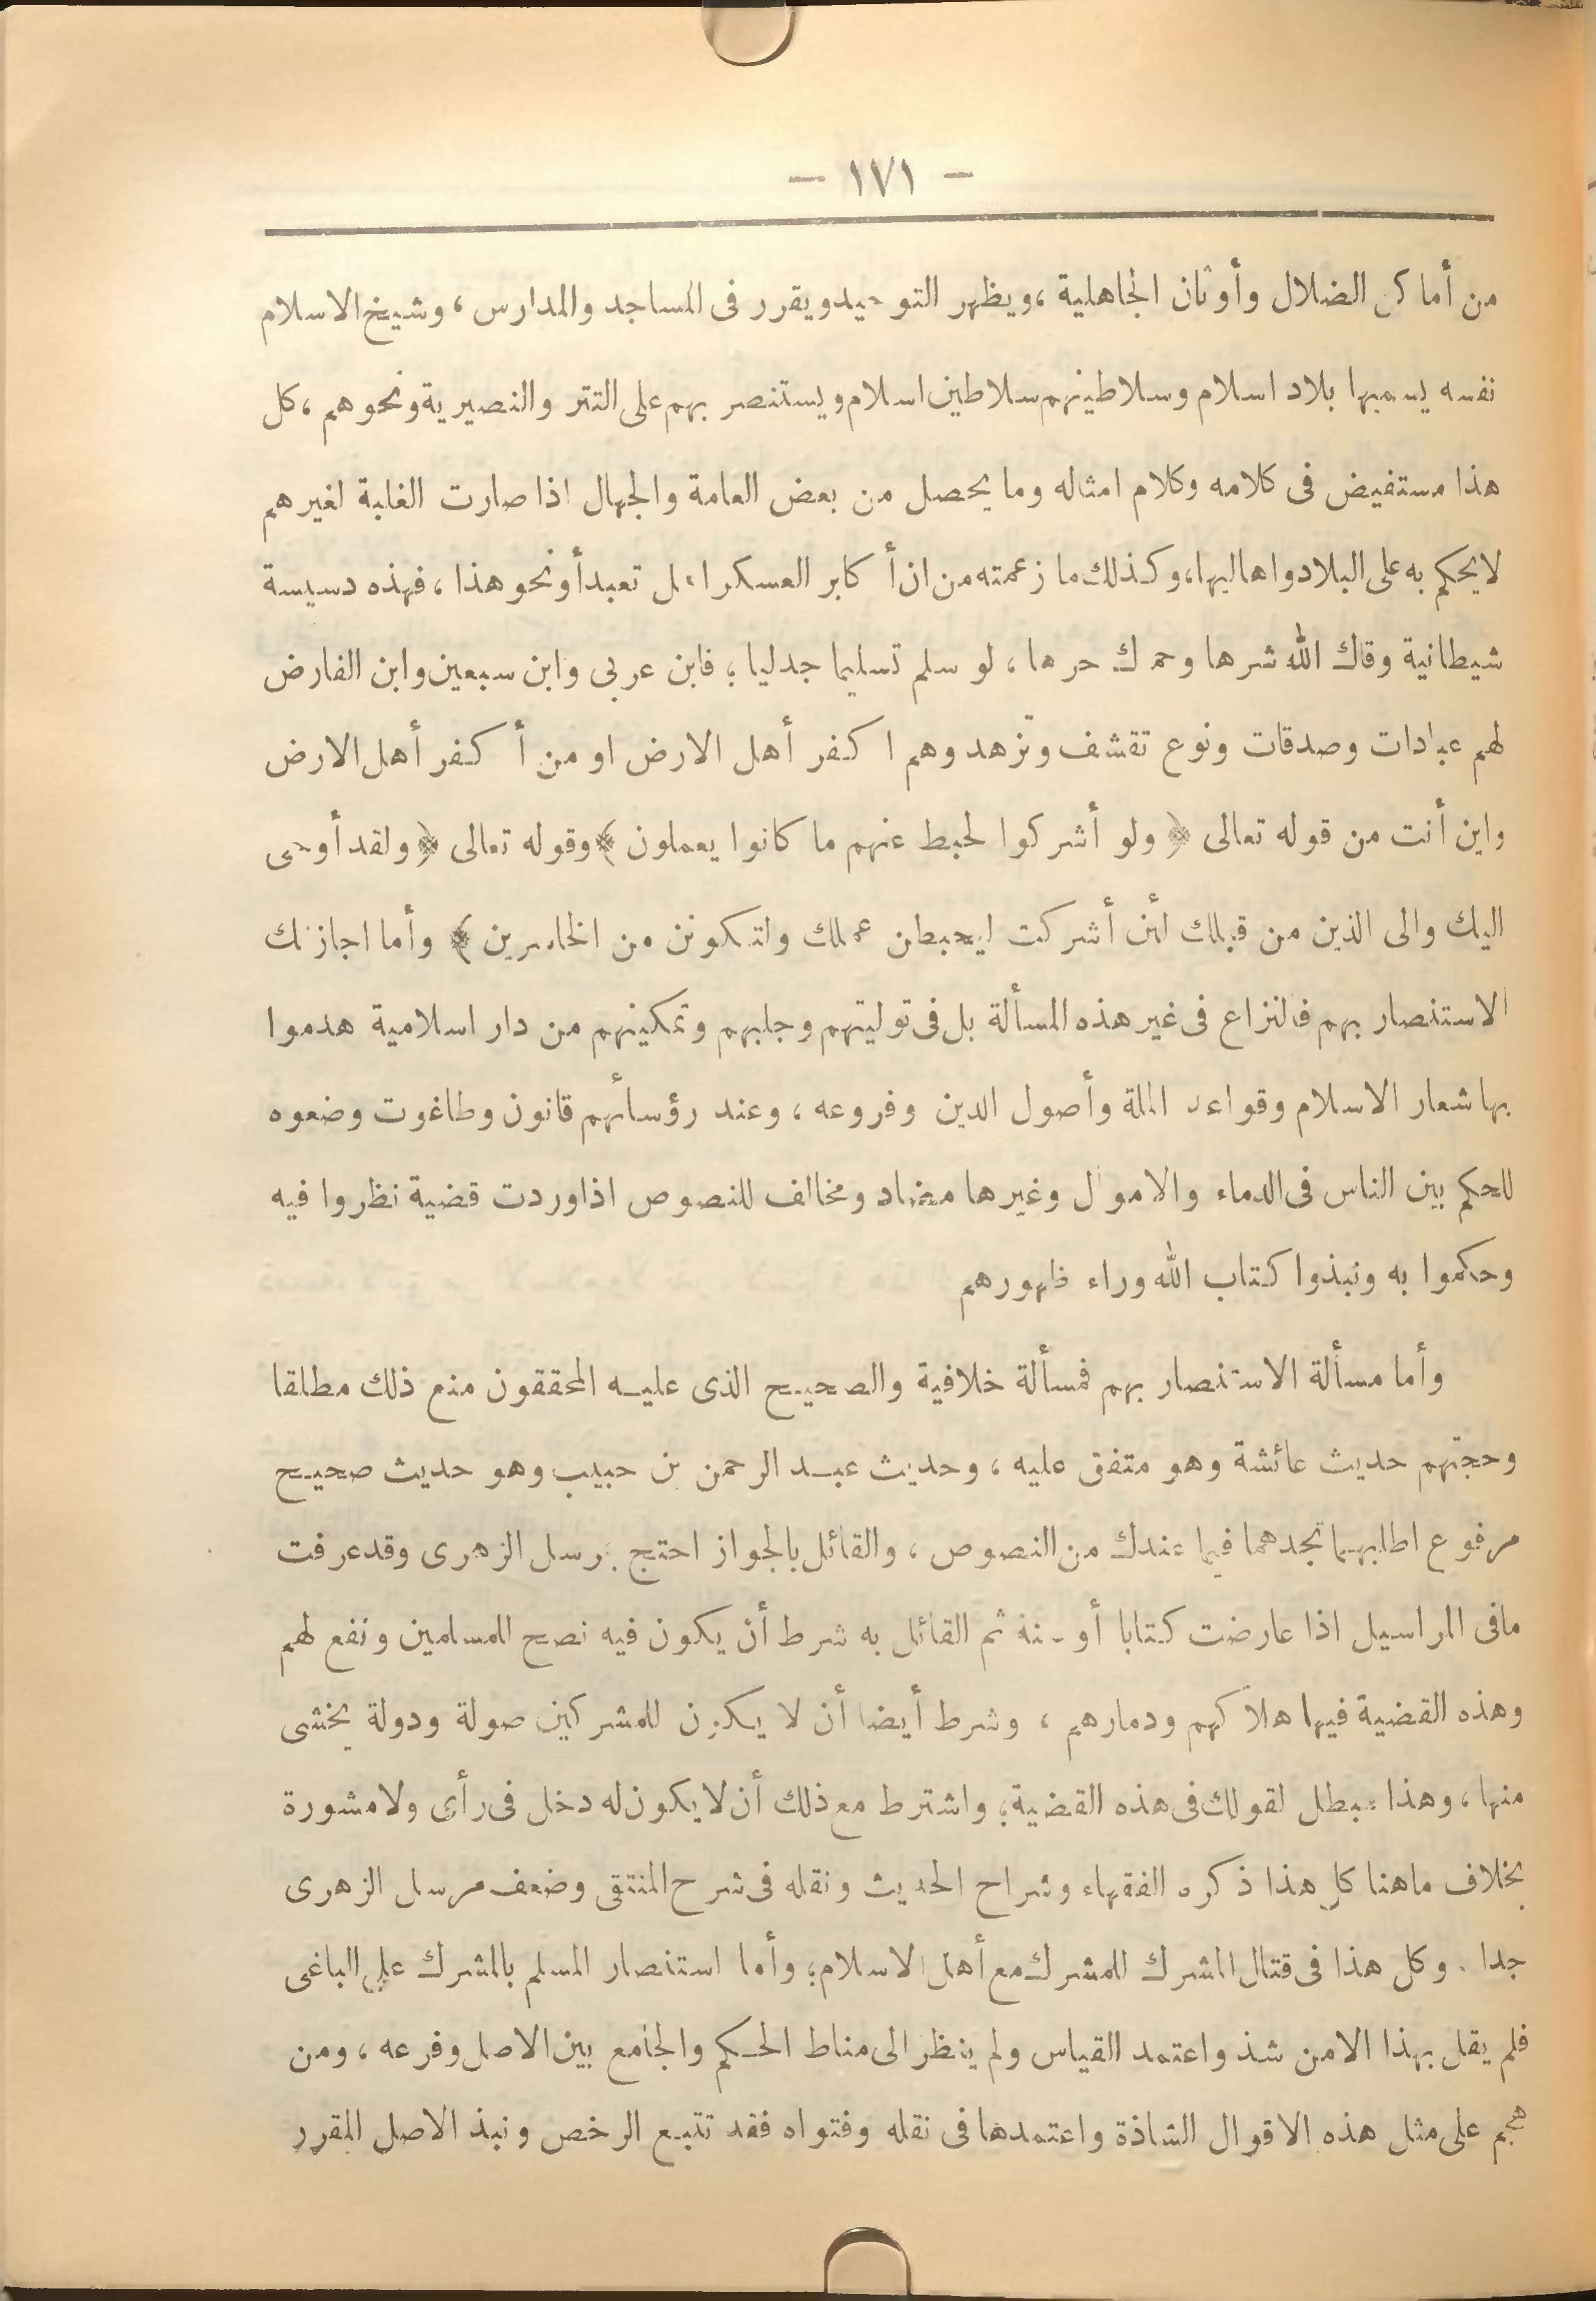 — ١٧١ —
من أماكن الضلال وأوثان الجاهلية ، ويظهر التوحيد ويقرر فى المساجد والمدارس ، وشيخ الاسلام
نفسه يسميها بلاد اسلام وسلاطينهم سلاطين اسلام ويستنصر بهم على التتر والنصيرية ونحوهم ، كل
هذا مستفيض فى كلامه وكلام امثاله وما يحصل من بعض العامة والجهال اذا صارت الغلبة لغيرهم
لا يحكم به على البلاد واهاليها ، وكذلك ما زعمته من ان أكابر العسكر اهل تعبد أو نحو هذا ، فهذه دسيسة
شيطانية وقاك الله شرها وحماك حرها ، لو سلم تسليما جدليا ؛ فابن عربى وابن سبعين وابن الفارض
لهم عبادات وصدقات ونوع تقشف وتزهد وهم اكفر أهل الارض او من أكفر أهل الارض
واين أنت من قوله تعالى ﴿ ولو أشركوا لحبط عنهم ما كانوا يعملون ﴾ وقوله تعالى ﴿ ولقد أوحى
اليك والى الذين من قبلك لئن أشركت ليحبطن عملك ولتكونن من الخاسرين ﴾ وأما اجازتك
الاستنصار بهم فالنزاع فى غير هذه المسألة بل فى توليتهم وجلبهم وتمكينهم من دار اسلامية هدموا
بها شعار الاسلام وقواعد الملة وأصول الدين وفروعه ، وعند رؤسائهم قانون وطاغوت وضعوه
للحكم بين الناس فى الدماء والاموال وغيرها مضاد ومخالف للنصوص اذا وردت قضية نظروا فيه
وحكموا به ونبذوا كتاب الله وراء ظهورهم
وأما مسألة الاستنصار بهم فمسألة خلافية والصحيح الذى عليه المحققون منع ذلك مطلقا
وحجتهم حديث عائشة وهو متفق عليه ، وحديث عبد الرحمن بن حبيب وهو حديث صحيح
مرفوع اطلبهما تجدهما فيما عندك من النصوص ، والقائل بالجواز احتج بمرسل الزهرى وقد عرفت
مافى المراسيل اذا عارضت كتابا أو سنة ثم القائل به شرط أن يكون فيه نصح للمسلمين ونفع لهم
وهذه القضية فيها هلاكهم ودمارهم ، وشرط أيضا أن لا يكون للمشركين صولة ودولة يخشى
منها ، وهذا مبطل لقولك فى هذه القضية ؛ واشترط مع ذلك أن لا يكون له دخل فى رأى ولا مشورة
بخلاف ماهنا كل هذا ذكره الفقهاء وشراح الحديث ونقله فى شرح المنتقى وضعف مرسل الزهرى
جدا . وكل هذا فى قتال المشرك للمشرك مع أهل الاسلام ؛ وأما استنصار المسلم بالمشرك على الباغى
فلم يقل بهذا الا من شذ واعتمد القياس ولم ينظر الى مناط الحكم والجامع بين الاصل وفرعه ، ومن
هجم على مثل هذه الاقوال الشاذة واعتمدها فى نقله وفتواه فقد تتبع الرخص ونبذ الاصل المقرر